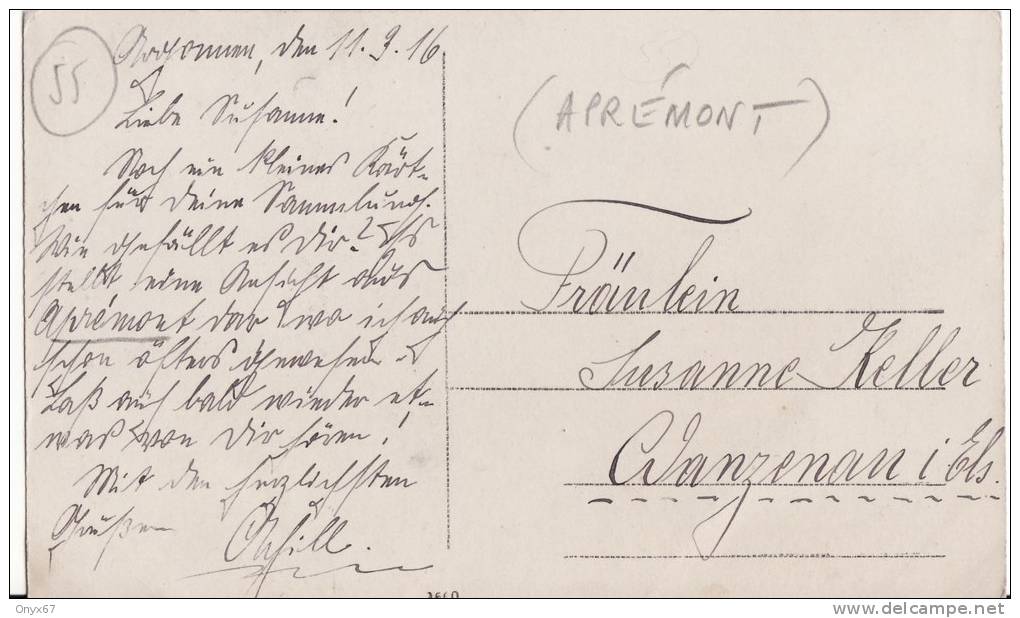 55
Argonnen, den 11.9.16
Liebe Susanne!
Noch ein kleines Kärt-
chen für deine Sammlung.
Wie gefällt es dir? Es
stellt eine Ansicht aus
Aprémont dar wo ich auch
schon öfters gewesen.
Laß auch bald wieder et-
was von dir hören!
Mit den herzlichsten
Grüßen
Achill.
(APRÉMONT)
Fräulein
Susanne Keller
Wanzenau i Els.
Onyx67
http://www.delcampe.net